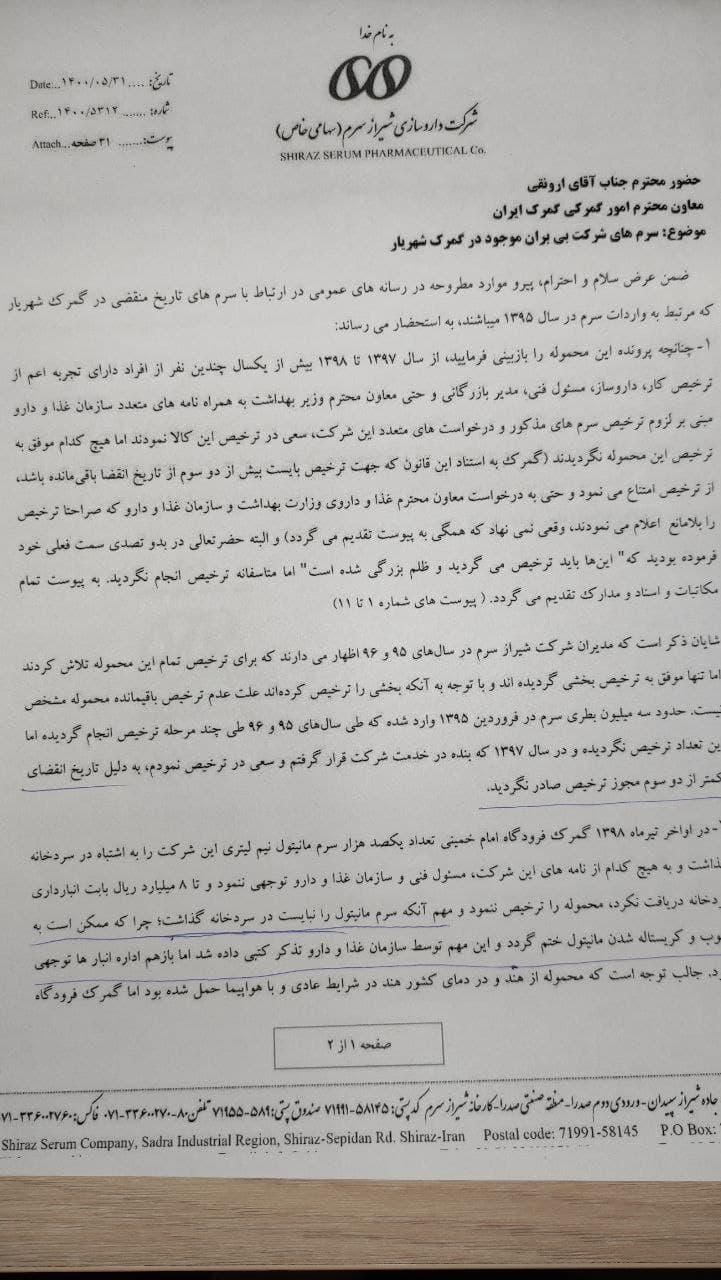 به نام خدا
شرکت داروسازی شیراز سرم (سهامی خاص)
SHIRAZ SERUM PHARMACEUTICAL Co.
تاریخ: .... ۱۴۰۰/۰۵/۳۱...Date:
شماره: ...... ۱۴۰۰/۵۳۱۲...Ref:
پیوست:...... ۳۱ صفحه...Attach
حضور محترم جناب آقای ارونقی
معاون محترم امور گمرکی گمرک ایران
موضوع: سرم های شرکت بی بران موجود در گمرک شهریار
ضمن عرض سلام و احترام، پیرو موارد مطروحه در رسانه های عمومی در ارتباط با سرم های تاریخ منقضی در گمرک شهریار
که مرتبط به واردات سرم در سال ۱۳۹۵ میباشند، به استحضار می رساند:
۱-چنانچه پرونده این محموله را بازبینی فرمایید، از سال ۱۳۹۷ تا ۱۳۹۸ بیش از یکسال چندین نفر از افراد دارای تجربه اعم از
ترخیص کار، داروساز، مسئول فنی، مدیر بازرگانی و حتی معاون محترم وزیر بهداشت به همراه نامه های متعدد سازمان غذا و دارو
مبنی بر لزوم ترخیص سرم های مذکور و درخواست های متعدد این شرکت، سعی در ترخیص این کالا نمودند اما هیچ کدام موفق به
ترخیص این محموله نگردیدند (گمرک به استناد این قانون که جهت ترخیص بایست بیش از دو سوم از تاریخ انقضا باقی‌مانده باشد،
از ترخیص امتناع می نمود و حتی به درخواست معاون محترم غذا و داروی وزارت بهداشت و سازمان غذا و دارو که صراحتا ترخیص
را بلامانع اعلام می نمودند، وقعی نمی نهاد که همگی به پیوست تقدیم می گردد) و البته حضرتعالی در بدو تصدی سمت فعلی خود
فرموده بودید که" این‌ها باید ترخیص می گردید و ظلم بزرگی شده است" اما متاسفانه ترخیص انجام نگردید. به پیوست تمام
مکاتبات و اسناد و مدارک تقدیم می گردد. ( پیوست های شماره ۱ تا ۱۱)
شایان ذکر است که مدیران شرکت شیراز سرم در سال‌های ۹۵ و ۹۶ اظهار می دارند که برای ترخیص تمام این محموله تلاش کردند
اما تنها موفق به ترخیص بخشی گردیده اند و با توجه به آنکه بخشی را ترخیص کرده‌اند علت عدم ترخیص باقیمانده محموله مشخص
نیست. حدود سه میلیون بطری سرم در فروردین ۱۳۹۵ وارد شده که طی سال‌های ۹۵ و ۹۶ طی چند مرحله ترخیص انجام گردیده اما
ین تعداد ترخیص نگردیده و در سال ۱۳۹۷ که بنده در خدمت شرکت قرار گرفتم و سعی در ترخیص نمودم، به دلیل تاریخ انقضای
کمتر از دو سوم مجوز ترخیص صادر نگردید.
-در اواخر تیرماه ۱۳۹۸ گمرک فرودگاه امام خمینی تعداد یکصد هزار سرم مانیتول نیم لیتری این شرکت را به اشتباه در سردخانه
ذاشت و به هیچ کدام از نامه های این شرکت، مسئول فنی و سازمان غذا و دارو توجهی ننمود و تا ۸ میلیارد ریال بابت انبارداری
ردخانه دریافت نکرد، محموله را ترخیص ننمود و مهم آنکه سرم مانیتول را نبایست در سردخانه گذاشت؛ چرا که ممکن است به
وب و کریستاله شدن مانیتول ختم گردد و این مهم توسط سازمان غذا و دارو تذکر کتبی داده شد اما بازهم اداره انبار ها توجهی
رد. جالب توجه است که محموله از هند و در دمای کشور هند در شرایط عادی و با هواپیما حمل شده بود اما گمرک فرودگاه
صفحه ۱ از ۲
جاده شیراز سپیدان-ورودی دوم صدرا-منطقه صنعتی صدرا-کارخانه شیراز سرم کد پستی: ۵۸۱۴۵-۷۱۹۹۱ صندوق پستی: ۵۸۹-۷۱۹۵۵ تلفن: ۸۰-۳۳۶۰۰۲۷۰-۰۷۱ فاکس: ۳۳۶۰۰۲۷۶-۰۷۱
Shiraz Serum Company, Sadra Industrial Region, Shiraz-Sepidan Rd. Shiraz-Iran Postal code: 71991-58145 P.O Box: